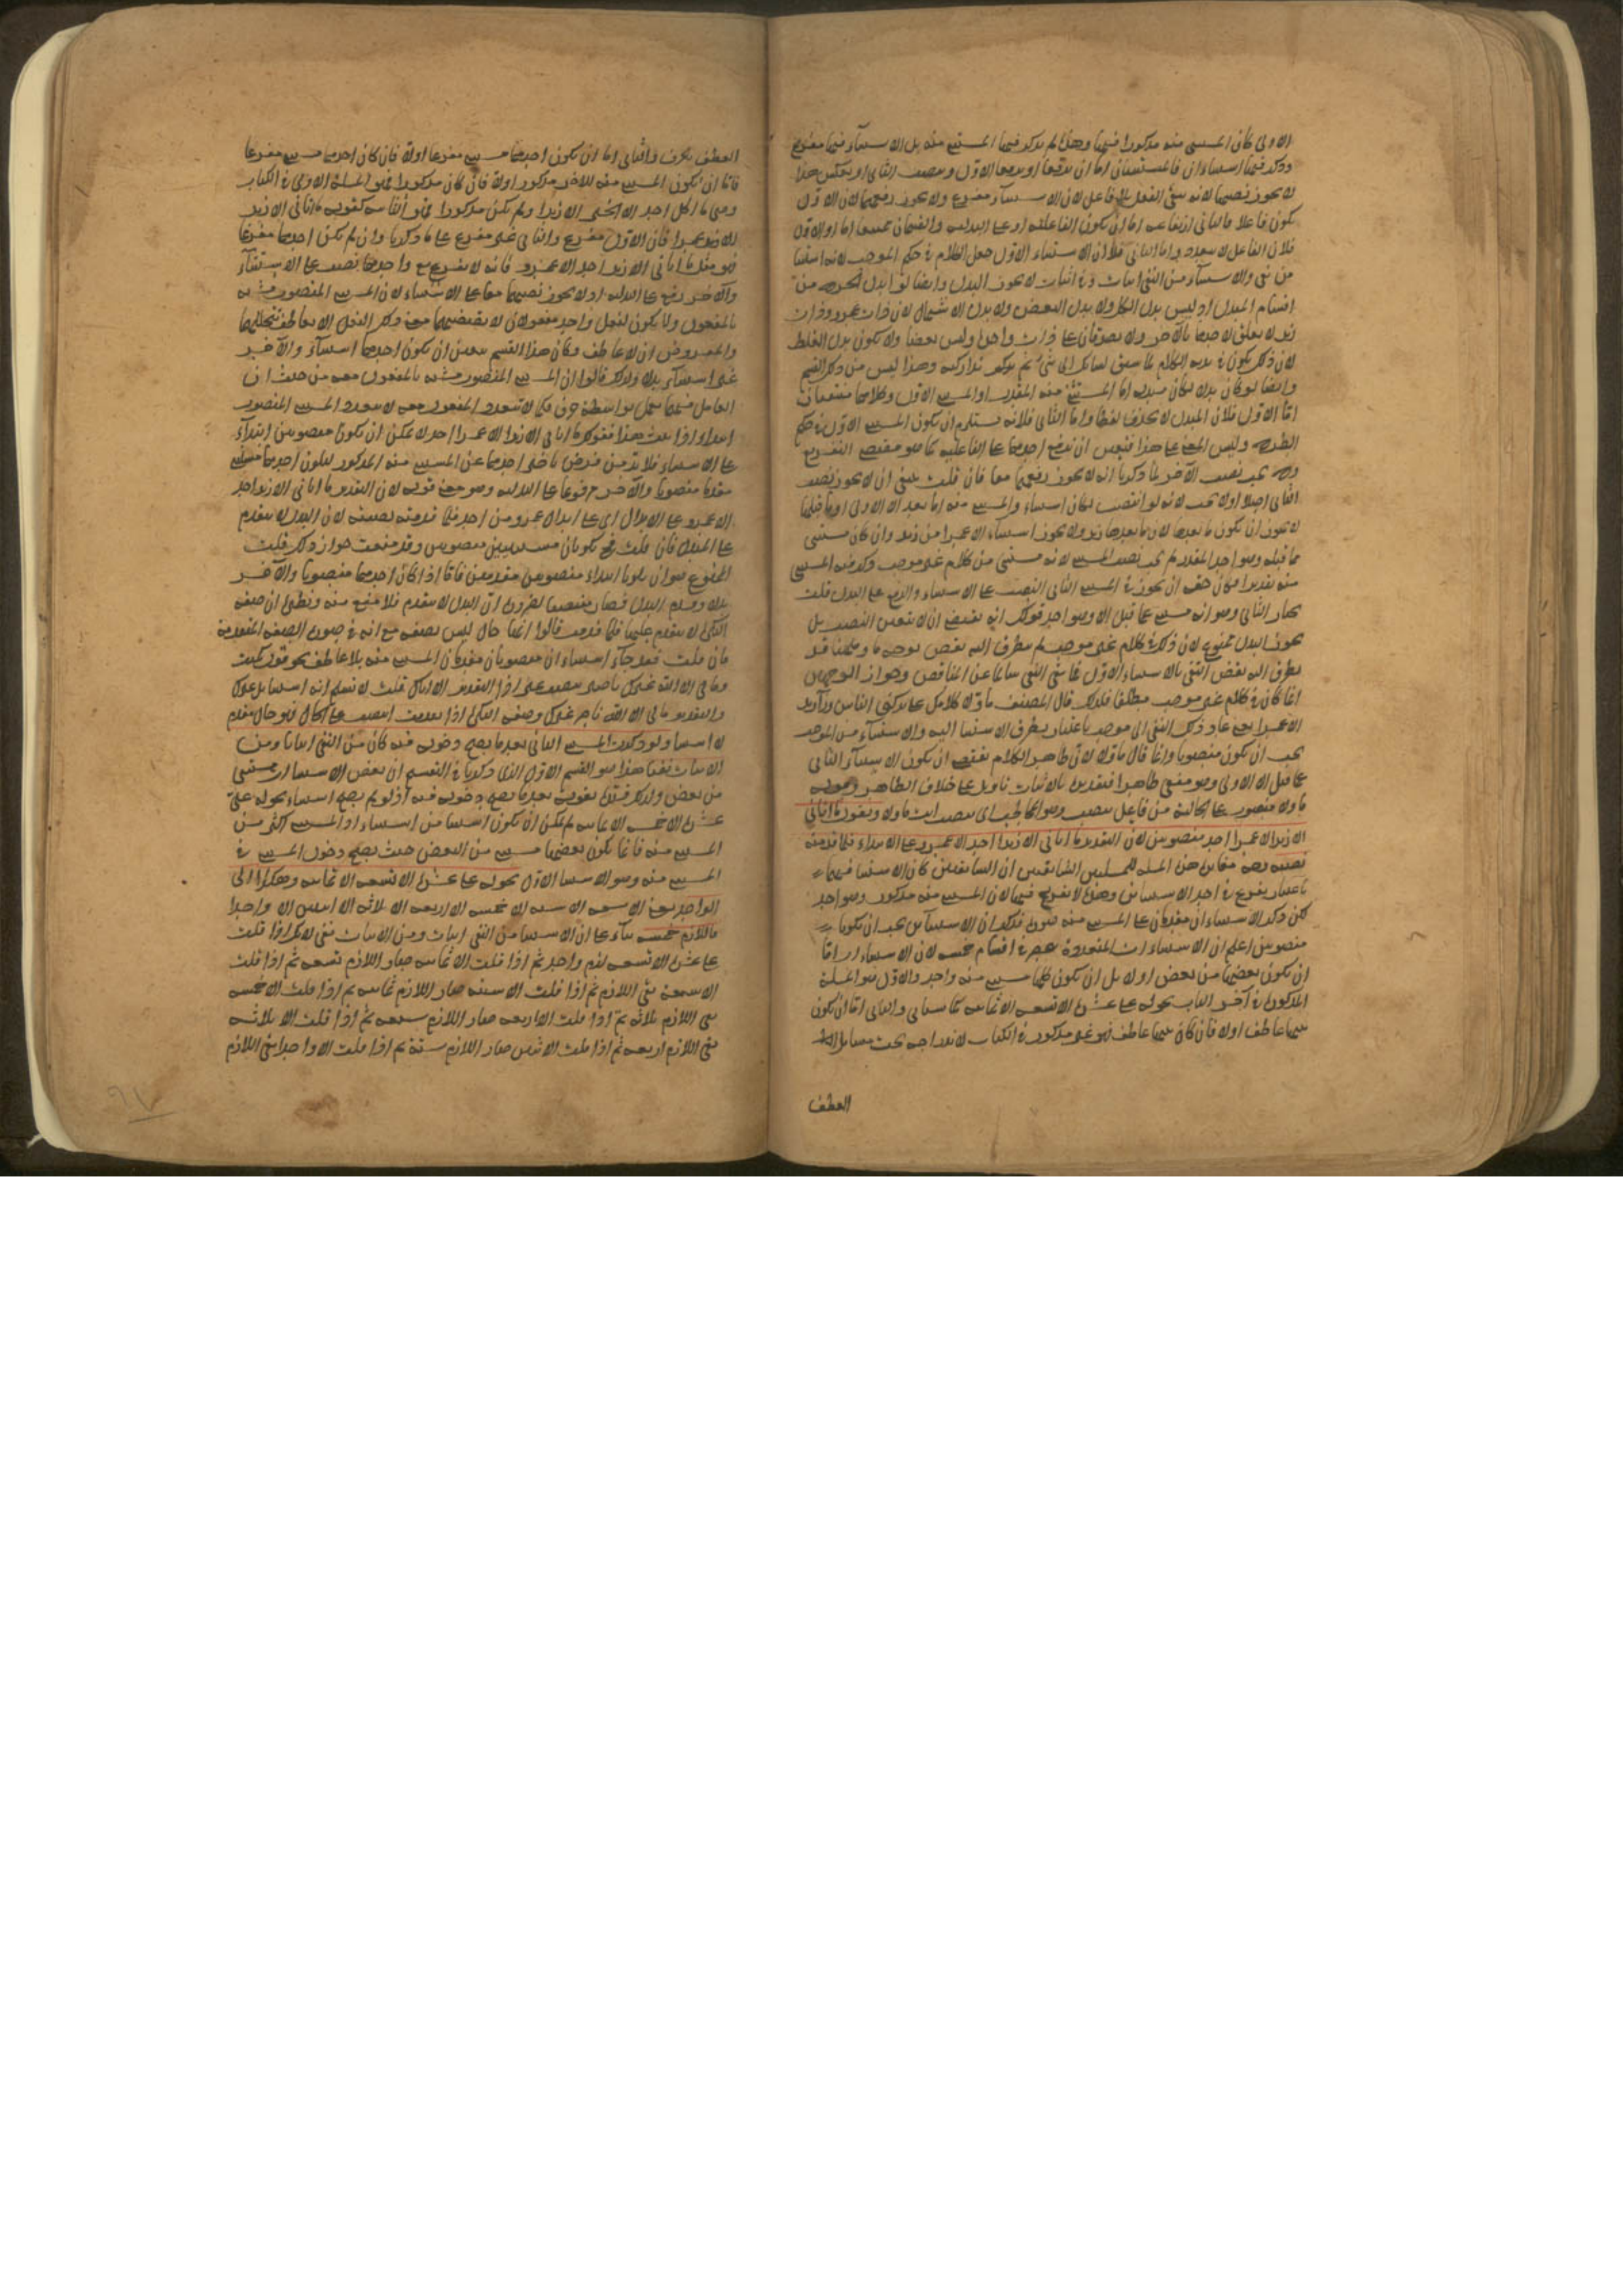 الاولى كان المستثنى منه مذكورا فيها وهذا لم يذكر فيها المستثنى منه بل الاستثناء فيها مفرغ
وذكر فيها استثناءان فالمستثنيان اما ان ترفعهما او ترفع الاول وتنصب الثانى او بعكس هذا
لا يجوز نصبهما لانه يبقى الفعل بلا فاعل لان الاستثناء مفرغ ولا يجوز رفعهما لان الاول
يكون فاعلا والثانى ارتفاعه اما ان يكون الفاعلية او على البدلية والقسمان ممتنعان اما الاول
فلان الفاعل لا يتعدد واما الثانى فلان الاستثناء الاول جعل الكلام فى حكم الموجب لانه استثنا
من نفى والاستثناء من النفى اثبات وفى اثبات لا يجوز البدل وايضا لو ابدل لخرج من
اقسام البدل اذ ليس بدل الكل ولا بدل البعض ولا بدل الاشتمال لان ذات عمرو وذات
زيد لا تعلق لاحدهما بالآخر ولا يصدقان على ذات واحدة وليس بعضا ولا يكون بدل الغلط
لان ذلك يكون فى بدء الكلام لما سبق لسانك الى شئ ثم تداركته وهذا ليس من ذلك القسم
وايضا لو كان بدلا لكان مبدله اما المستثنى منه المقدر او المستثنى الاول وكلاهما منتفيان
اما الاول فلان المبدل لا يحذف لفظا واما الثانى فلانه يستلزم ان يكون المستثنى الاول فى حكم
الطرح وليس المعنى على هذا فتعين ان ترفع احدهما على الفاعلية كما هو مقتضى التفريغ
وح يجب نصب الآخر لما ذكرنا انه لا يجوز رفعهما معا فان قلت ينبغى ان لا يجوز نصب
الثانى اصلا اذ لا يجب لانه لو انتصب لكان استثناء والمستثنى منه اما بعد الا الاولى او ما قبلها
لا يجوز ان يكون ما بعدها لان ما بعدها زيد ولا يجوز استثناء الا عمرا من زيد وان كان مستثنى
مما قبله وهو احد المقدر لم يجب نصب المستثنى لانه مستثنى من كلام غير موجب وذكر فيه المستثنى
منه تقديرا فكان حقه ان يجوز فى المستثنى الثانى النصب على الاستثناء والرفع على البدل قلت
يختار الثانى وهو انه مستثنى مما قبل الا وهو احد قولك انه يقتضى ان لا يتعين النصب بل
يجوز البدل ممنوع لان ذلك فى كلام غير موجب لم يتطرق اليه نقض بوجه ما وههنا قد
تطرق اليه نقض النفى بالاستثناء الاول فما بقى النفى سالما عن المناقض وجواز الوجهان
انما كان فى كلام غير موجب مطلقا فلذلك قال المصنف ما
الا عمرا يعنى عاد ذلك النفى الى موجب باعتبار تطرق الاستثنا اليه والاستثناء من الموجب
يجب ان يكون منصوبا وانما قال لان ظاهر الكلام يقتضى ان يكون الاستثناء الثانى
مما قبل الا الاولى وهو منفى ظاهرا فتقديره بالاثبات تاويل على خلاف الظاهر وقوله
منصوب على الحالية من فاعل تنصب وهو المخاطب اى تنصب انت وتقول ما اتانى
الا زيدا الا عمرا احد منصوبين لان التقدير ما اتانى الا زيدا احد الا عمرو على الابدال فلما قدمته
نصبته وجه مقابلة هذه المسئلة للمسئلتين السابقتين ان السابقتين كان الاستثنا فيهما
باعتبار تفريغ فى احد الاستثنائين وهذا لا تفريغ فيها لان المستثنى منه مذكور وهو احد
لكن ذكر الاستثناءان مقدمان على المستثنى منه صورة فذكر ان الاستثنائين يجب ان يكونا
منصوبين اعلم ان الاستثناءات المتعددة منحصرة فى اقسام خمسة لان الاستثناءات اما
ان يكون بعضها من بعض اولا بل ان يكون كلها مستثنى منه واحد والاول هو المسئلة
المذكورة فى آخر الباب نحو له على عشرة الا تسعة الا ثمانية كما سياتى والثانى اما ان يكون
بينهما عاطف اولا فان كان بينهما عاطف فهو غير مذكور فى الكتاب لاندراجه تحت مسائل
العطف
العطف بحرف والثانى اما ان يكون احدهما مستثنى مفرغا اولا فان كان احدهما مستثنى مفرغا
فاما ان يكون المستثنى منه للآخر مذكور اولا فان كان مذكورا فهو المسئلة الاولى فى الكتاب
وهى ما اكل احد الا الخبز الا زيدا ولم يكن مذكورا فهو الثانية كقولك ما اتانى الا زيد
الا عمرا فان الاول مفرغ والثانى غير مفرغ على ما ذكرنا وان لم يكن احدهما مفرغا
فهو مثل ما اتانى الا زيدا احد الا عمرو فانه لا تفريغ مع واحدهما نصب على الاستثناء
والآخر رفع على البدلية اذ لا يجوز نصبهما معا على الاستثناء لان المستثنى المنصوب مشبه
بالمفعول ولا يكون لفعل واحد مفعولان لا يقتضيهما معنى ذلك الفعل الا بعاطف يتخللهما
والمفروض ان لا عاطف وكان هذا القسم يتعين ان يكون احدهما استثناء والآخر
غير استثناء بدلا ولذلك قالوا ان المستثنى المنصوب مشبه بالمفعول معه من حيث ان
العامل فيهما يعمل بواسطة حرف فكما لا يتعدد المفعول معه لا يتعدد المستثنى المنصوب
ابتداء اذا ثبت هذا فقولك ما اتانى الا زيدا الا عمرا احد لا يمكن ان يكونا منصوبين ابتداء
على الاستثناء فلا بد من فرض تاخر احدهما عن المستثنى منه المذكور ليكون احدهما مستثنى
مقدما منصوبا والآخر مرفوعا على البدلية وهو معنى قوله لان التقدير ما اتانى الا زيدا احد
الا عمرو على الابدال اى على ابدال عمرو من احد فلما قدمته نصبته لان البدل لا يتقدم
على المبدل فان قلت فح يكونان مستثنيين منصوبين وقد منعت جواز ذلك قلت
الممنوع هو ان يكونا ابتداء منصوبين مقدمين فاما اذا كان احدهما منصوبا والآخر
بدلا وقدم البدل فصار منتصبا لضرورة ان البدل لا يتقدم فلا منع منه ونظيره ان صفة
النكرة لا يتقدم عليها فلما قدمت قالوا انها حال ليس بصفة مع انه فى صورة الصفة المتقدمة
فان قلت فقد جاء استثناءان منصوبان مقدمان المستثنى منه بلا عاطف نحو قول كميت
ومالى الا الله غيرك ناصر بنصب غير اذ التقدير الا اياك قلت لا نسلم انه استثنا بل غيرك
والتقدير مالى الا الله ناصر غيرك وصفة النكرة اذا تقدمت انتصبت على الحال فهو حال مقدم
لا استثنا ولو ذكرت المستثنى الثانى بعد ما يصح دخوله فيه كان من النفى اثباتا ومن
الاثبات نفيا هذا هو القسم الاول الذى ذكرنا فى التقسيم ان بعض الاستثناءات مستثنى
من بعض ولذلك قال بقوله بعد ما يصح دخوله فيه اذ لو لم يصح استثناء نحو له على
عشرة الا خمسة الا ثمانية لم يمكن ان يكون استثنا من استثناء اذ المستثنى اكثر من
المستثنى منه فانما يكون بعضها مستثنى من البعض حيث يصح دخول المستثنى فى
المستثنى منه وهو الاستثنا الاول نحو له على عشرة الا تسعة الا ثمانية وهكذا الى
الواحد يعنى الا سبعة الا ستة الا خمسة الا اربعة الا ثلاثة الا اثنين الا واحدا
فاللازم خمسة بناء على ان الاستثنا من النفى اثبات ومن الاثبات نفى لانك اذا قلت
على عشرة الا تسعة لزم واحد ثم اذا قلت الا ثمانية صار اللازم تسعة ثم اذا قلت
الا سبعة بقى اللازم ثم اذا قلت الا ستة صار اللازم ثمانية ثم اذا قلت الا خمسة
بقى اللازم ثلاثة ثم اذا قلت الا اربعة صار اللازم سبعة ثم اذا قلت الا ثلاثة
بقى اللازم اربعة ثم اذا قلت الا اثنين صار اللازم ستة ثم اذا قلت الا واحدا بقى اللازم